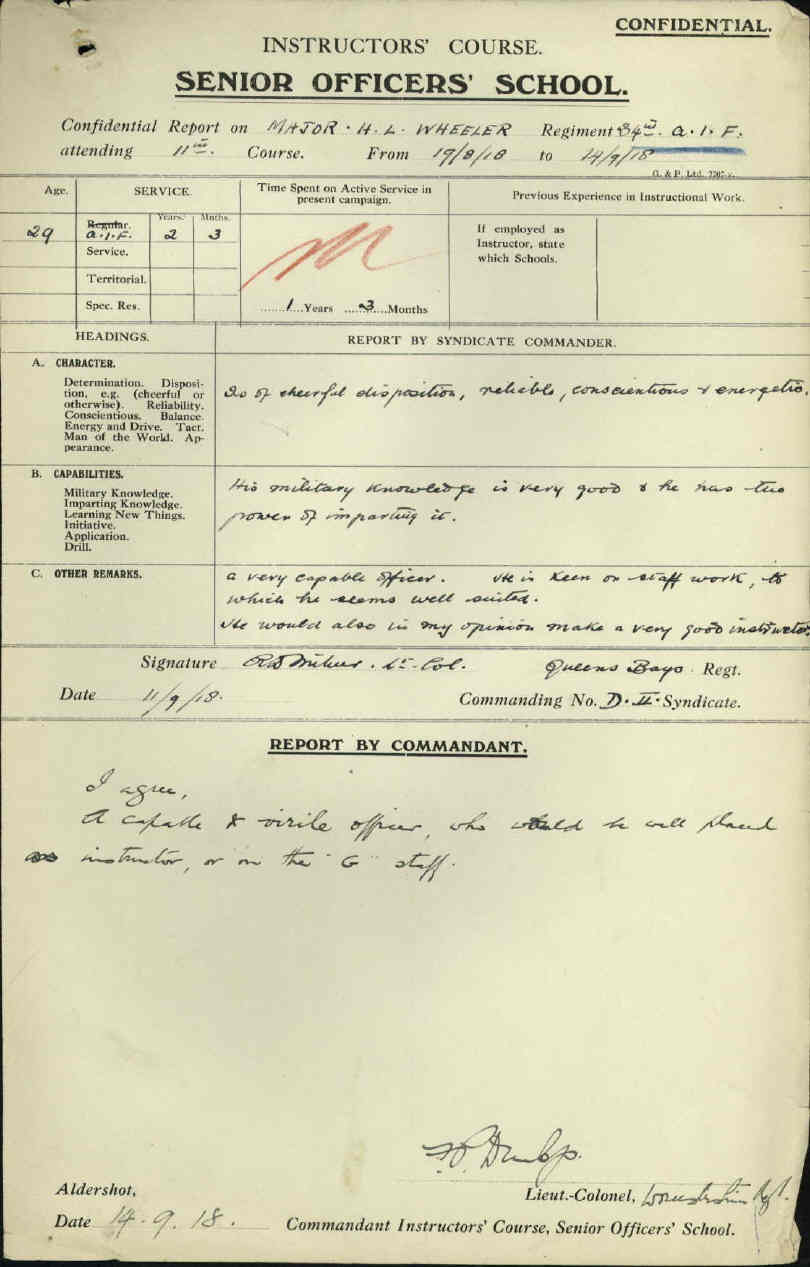 CONFIDENTIAL.
INSTRUCTORS' COURSE.
SENIOR OFFICERS' SCHOOL.
Confidential Report on MAJOR . H. L. WHEELER Regiment 34th. A. I. F.
attending 11th. Course. From 19/8/18 to 14/9/18
G. & P. Ltd.
Age. SERVICE. Time Spent on Active Service in present campaign. Previous Experience in Instructional Work.
Years. Mnths.
29 Regular. A.I.F. 2 3
Service.
Territorial.
Spec. Res.
M
1 Years 3 Months
If employed as
Instructor, state
which Schools.
HEADINGS. REPORT BY SYNDICATE COMMANDER.
A. CHARACTER.
Determination. Disposi-
tion, e.g. (cheerful or
otherwise). Reliability.
Conscientious. Balance.
Energy and Drive. Tact.
Man of the World. Ap-
pearance.
Is of cheerful disposition, reliable, conscientious & energetic.
B. CAPABILITIES.
Military Knowledge.
Imparting Knowledge.
Learning New Things.
Initiative.
Application.
Drill.
His military knowledge is very good & he has the
power of imparting it.
C. OTHER REMARKS.
A very capable officer. He is keen on staff work, to
which he seems well suited.
He would also in my opinion make a very good instructor
Signature Lt-Col. Queens Bays Regt.
Date 11/9/18. Commanding No. D. II. Syndicate.
REPORT BY COMMANDANT.
I agree,
A capable & virile officer, who would be well placed
as instructor, or on the "G" staff.
Aldershot, Lieut.-Colonel, Regt.
Date 14.9.18. Commandant Instructors' Course, Senior Officers' School.